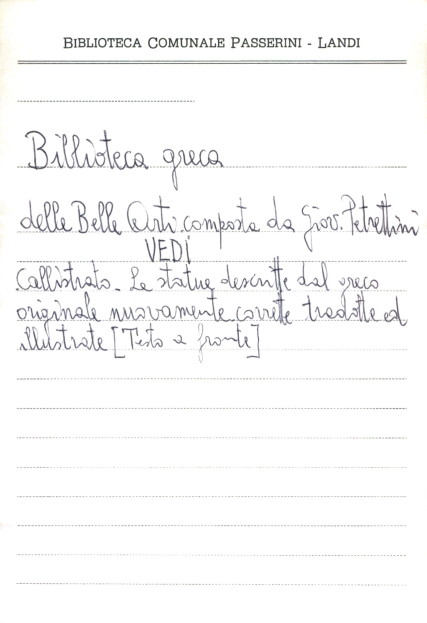 BIBLIOTECA COMUNALE PASSERINI - LANDI
Biblioteca greca
delle Belle Arti composta da Giov. Petrettini
VEDI
Callistrato - Le statue descritte dal greco
originale nuovamente corrette tradotte ed
illustrate [Testo a fronte]